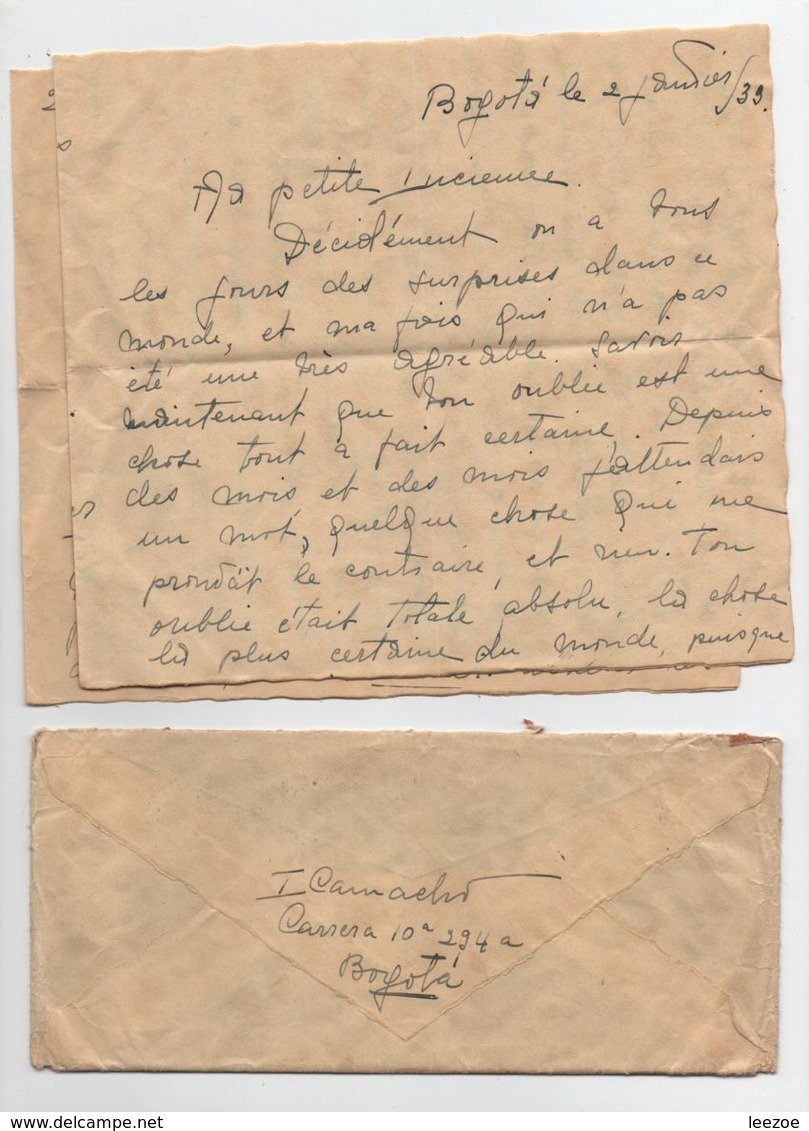 Bogotá le 2 janvier/39.
Ma petite
Décidément on a tous
les jours des surprises dans ce
monde, et ma fois qui n'a pas
été une très agréable. Savoir
maintenant que ton oublie est une
chose tout a fait certaine. Depuis
des mois et des mois j'attendais
un mot, quelque chose qui me
proudât le contraire, et rien. Ton
oublie était totale absolu, la chose
la plus certaine du monde, puisque
I Camacho
Carrera 10a 294a
Bogotá
delcampe.net
leezoe